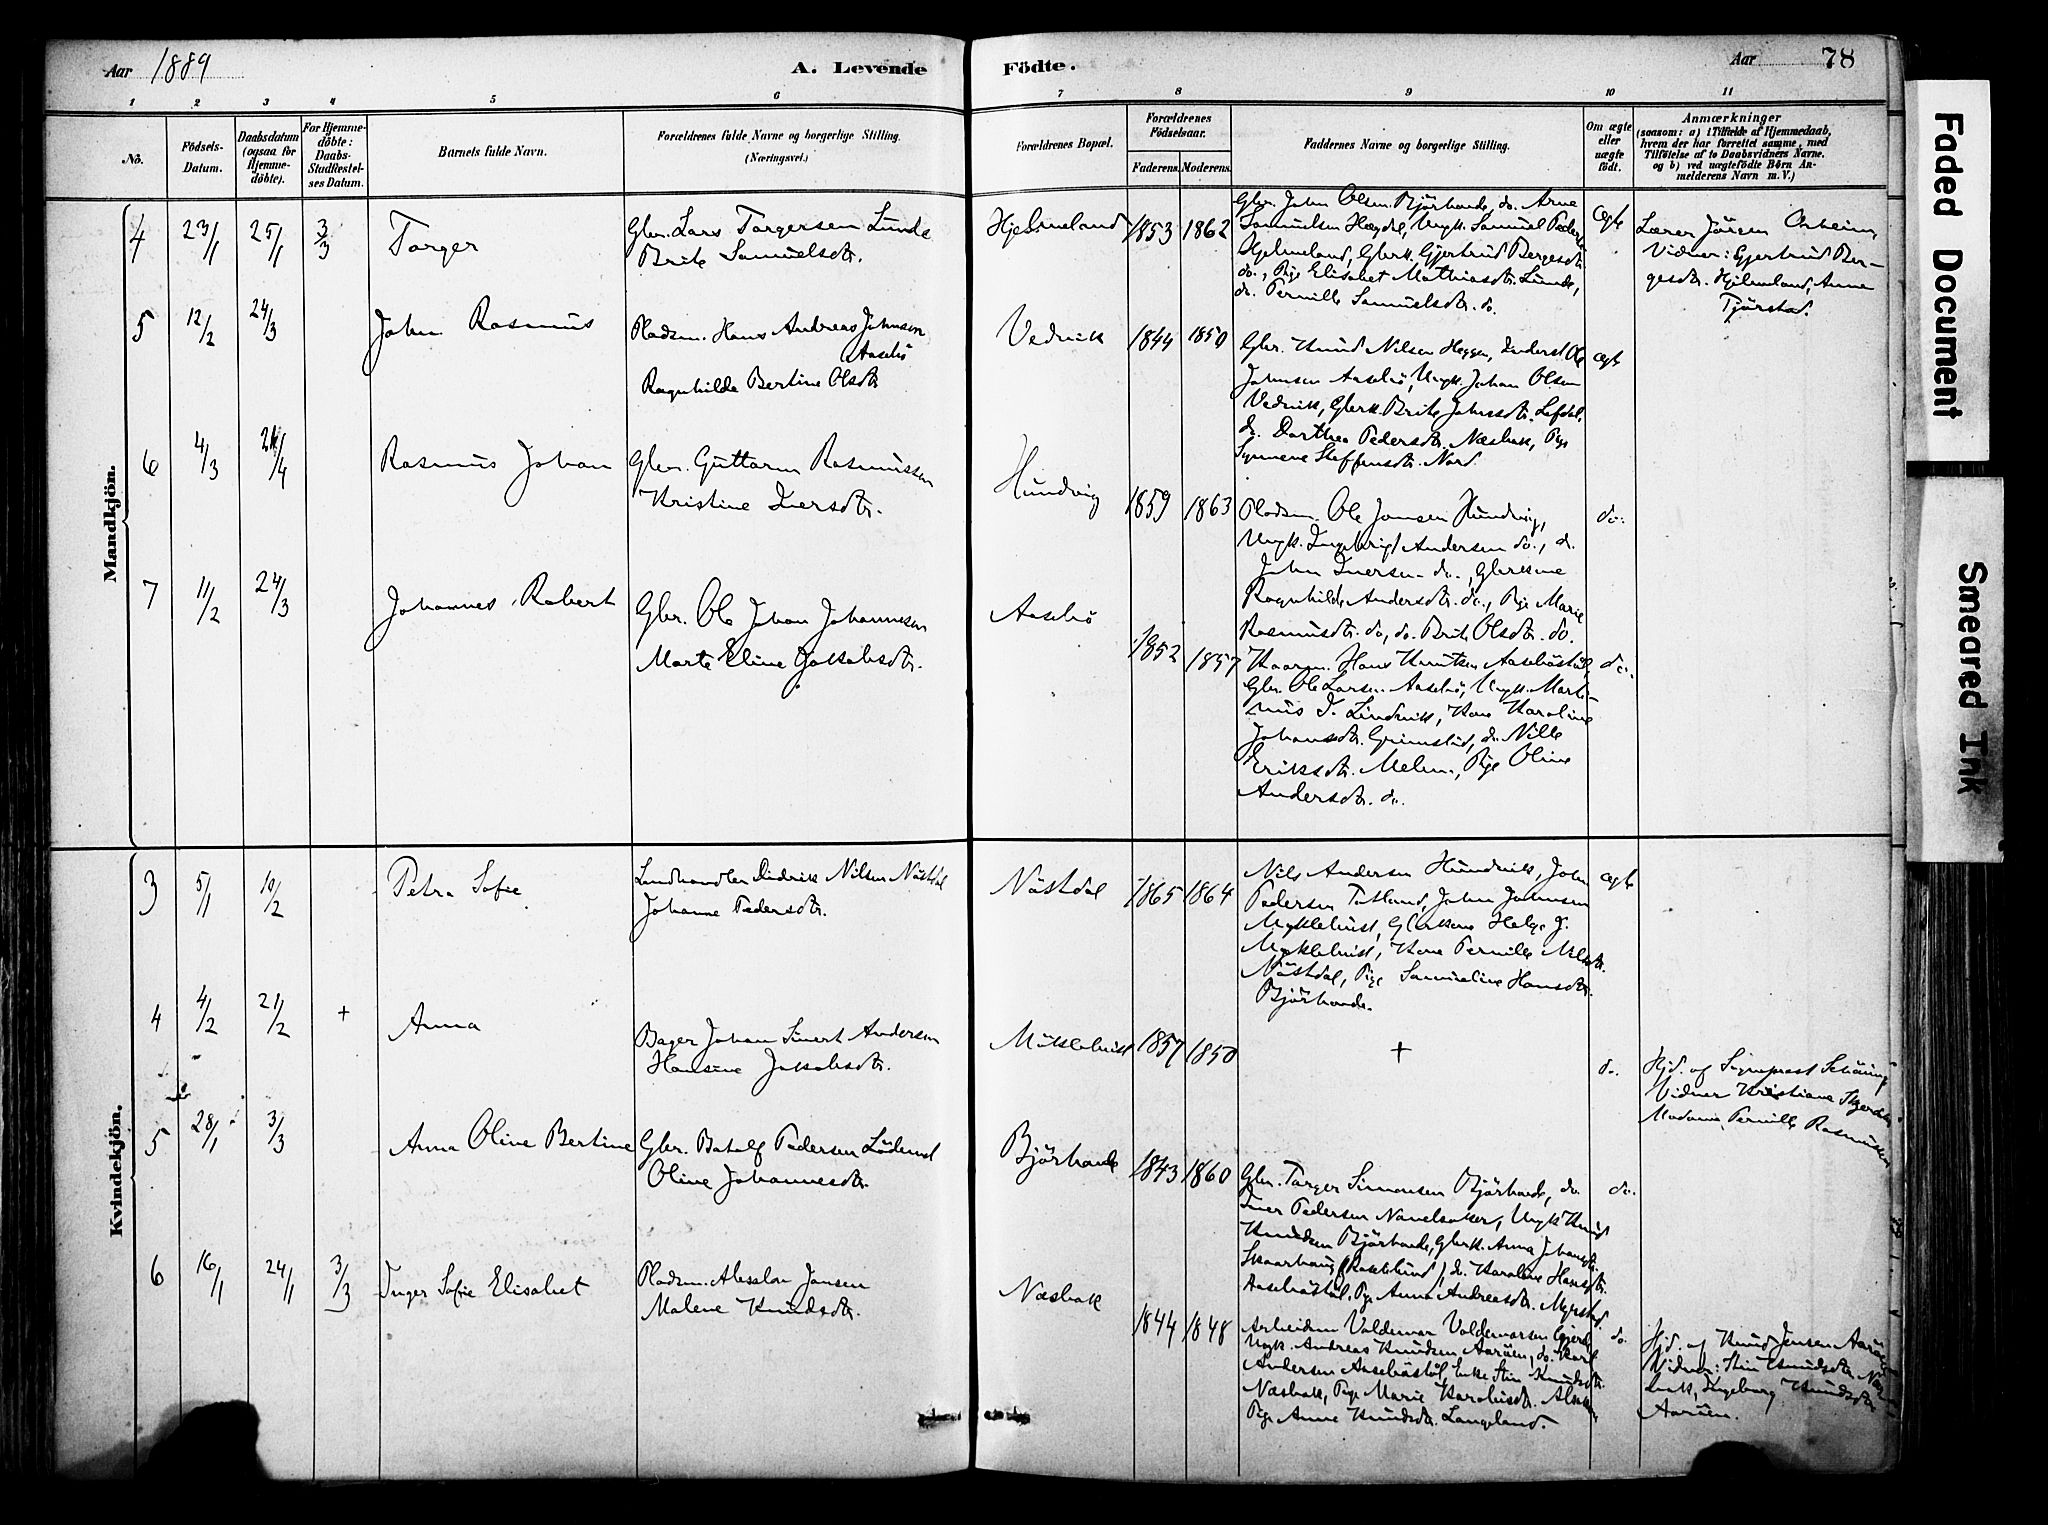 Aar 1889
A. Levende Födte.
Aar 78
1 2 3 4 5 6 7 8 9 10 11
No.
Födsels-Datum.
Daabsdatum (ogsaa for Hjemme-döbte).
For Hjemme-döbte: Daabs-Stadfæstel-ses Datum.
Barnets fulde Navn.
Forældrenes fulde Navne og borgerlige Stilling.
(Næringsvei.)
Forældrenes Bopæl.
Forældrenes Födselsaar.
Faderens. Moderens.
Faddernes Navne og borgerlige Stilling.
Om ægte eller uægte födt.
Anmærkninger
(saasom: a) i Tilfælde af Hjemmedaab, hvem der har forrettet samme, med Tilföielse af to Daabsvidners Navne. og b) ved uægtefödte Börn An-melderens Navn m. V.)
Mandkjön.
4 23/1 25/1 3/3 Torger
Gbr. Lars Torgersen Lunde
Brite Samuelsdtr.
Hjelmeland 1853 1862
Gbr. John Olsen Björhovde, do. Arne
Samuelsen Hægdal, Ungk. Samuel Peders.
Hjelmeland, Gbrk. Gjertrud Bergesdtr.
do., Pige Elisabet Mathiasdtr. Lunde,
do. Pernille Samuelsdtr. do.
ægte
Lærer Jörgen Osheim
Vidner: Gjertrud Ber-
gesdtr. Hjelmeland, Anne
Tjörstad.
5 12/2 24/3 John Rasmus
Pladsm. Hans Andreas Johnsen
Aasebö
Ragnhilde Bertine Olsdtr
Vedvik 1844 1850
Gbr. Knud Nilsen Heggen, Inderst Ole
Johnsen Aasebö, Ungk. Johan Olsen
Vedvik, Gbrk. Brite Johnsdtr. Lefdal,
do. Dorthea Pedersdtr. Næsbak, Pige
Synneve Steffensdtr. Nord.
ægte
6 4/3 21/4 Rasmus Johan
Gbr. Guttorm Rasmussen
Kristine Iversdtr.
Hundvig 1859 1863
Pladsm. Ole Jonsen Hundvig,
Ungk. Ingebrigt Andersen do., d.
John Iversen do., Gbrkone
Ragnhilde Andersdtr. do., Pige Marie
Rasmusdtr. do, do. Brite Olsdtr. do.
do.
7 11/2 24/3 Johannes Robert
Gbr. Ole Johan Johannesen
Marte Eline Jakobsdtr.
Aasebö 1852 1857
Kaarm. Hans Knutsen Aaseböstöl,
Gbr. Ole Larsen Aasebö, Ungk. Marti-
nus J. Lindvik, Kone Karoline
Johansdtr. Grimstad, do. Nille
Eriksdtr. Melen, Pige Oline
Andersdtr. do.
do.
Kvindekjön.
3 5/1 10/2 Petra Sofie
Landhandler Didrik Nilsen Nöstdal
Johanne Pedersdtr.
Nöstdal 1865 1864
Nils Andersen Hundvik, John
Pedersen Totland, John Johnsen
Myklebust, Gbrkone Helge J.
Myklebust, Kone Pernille Nilsdtr.
Nöstdal, Pige Samueline Hansdtr.
Björhovde.
ægte
4 4/2 21/2 + Anna
Bager Johan Sivert Andersen
Hansine Jakobsdtr.
Myklebust 1857 1850
+
do.
Hjd. af Sogneprest Schöning
Vidner Kristiane
Madame Pernille Rasmussen
5 28/1 3/3 Anna Oline Bertine
Gbr. Batolf Pedersen Lödemel
Oline Johannesdtr.
Björhovde 1843 1860
Gbr. Torger Simonsen Björhovde, do
Iver Pedersen Navelsaker, Ungk Knud
Knudsen Björhovde, Gbrk. Anna Johansdtr.
Skaarhaug (Raklelund), do. Karoline Hansdtr.
Aaseböstöl, Pige Anna Andreasdtr. Myrstad.
do.
6 16/1 24/1 3/3 Inger Sofie Elisabet
Pladsm. Absalon Jansen
Malene Knudsdtr.
Næsbak 1844 1848
Arbeidsm Valdemar Valdemarsen Gjerde
Ungk. Andreas Knudsen Aaröen, do. Karl
Andersen Aaseböstöl, Enke Stine Knudsdtr.
Næsbak, Pige Marie
Pige Anne Knudsdtr. Langeland.
do.
Hjd. af Knud Jensen Aaröen
Vidner: Stine Knudsdtr. Næs-
bak, Ingeborg Knudsdtr.
Aaröen.
Faded Document
Smeared Ink